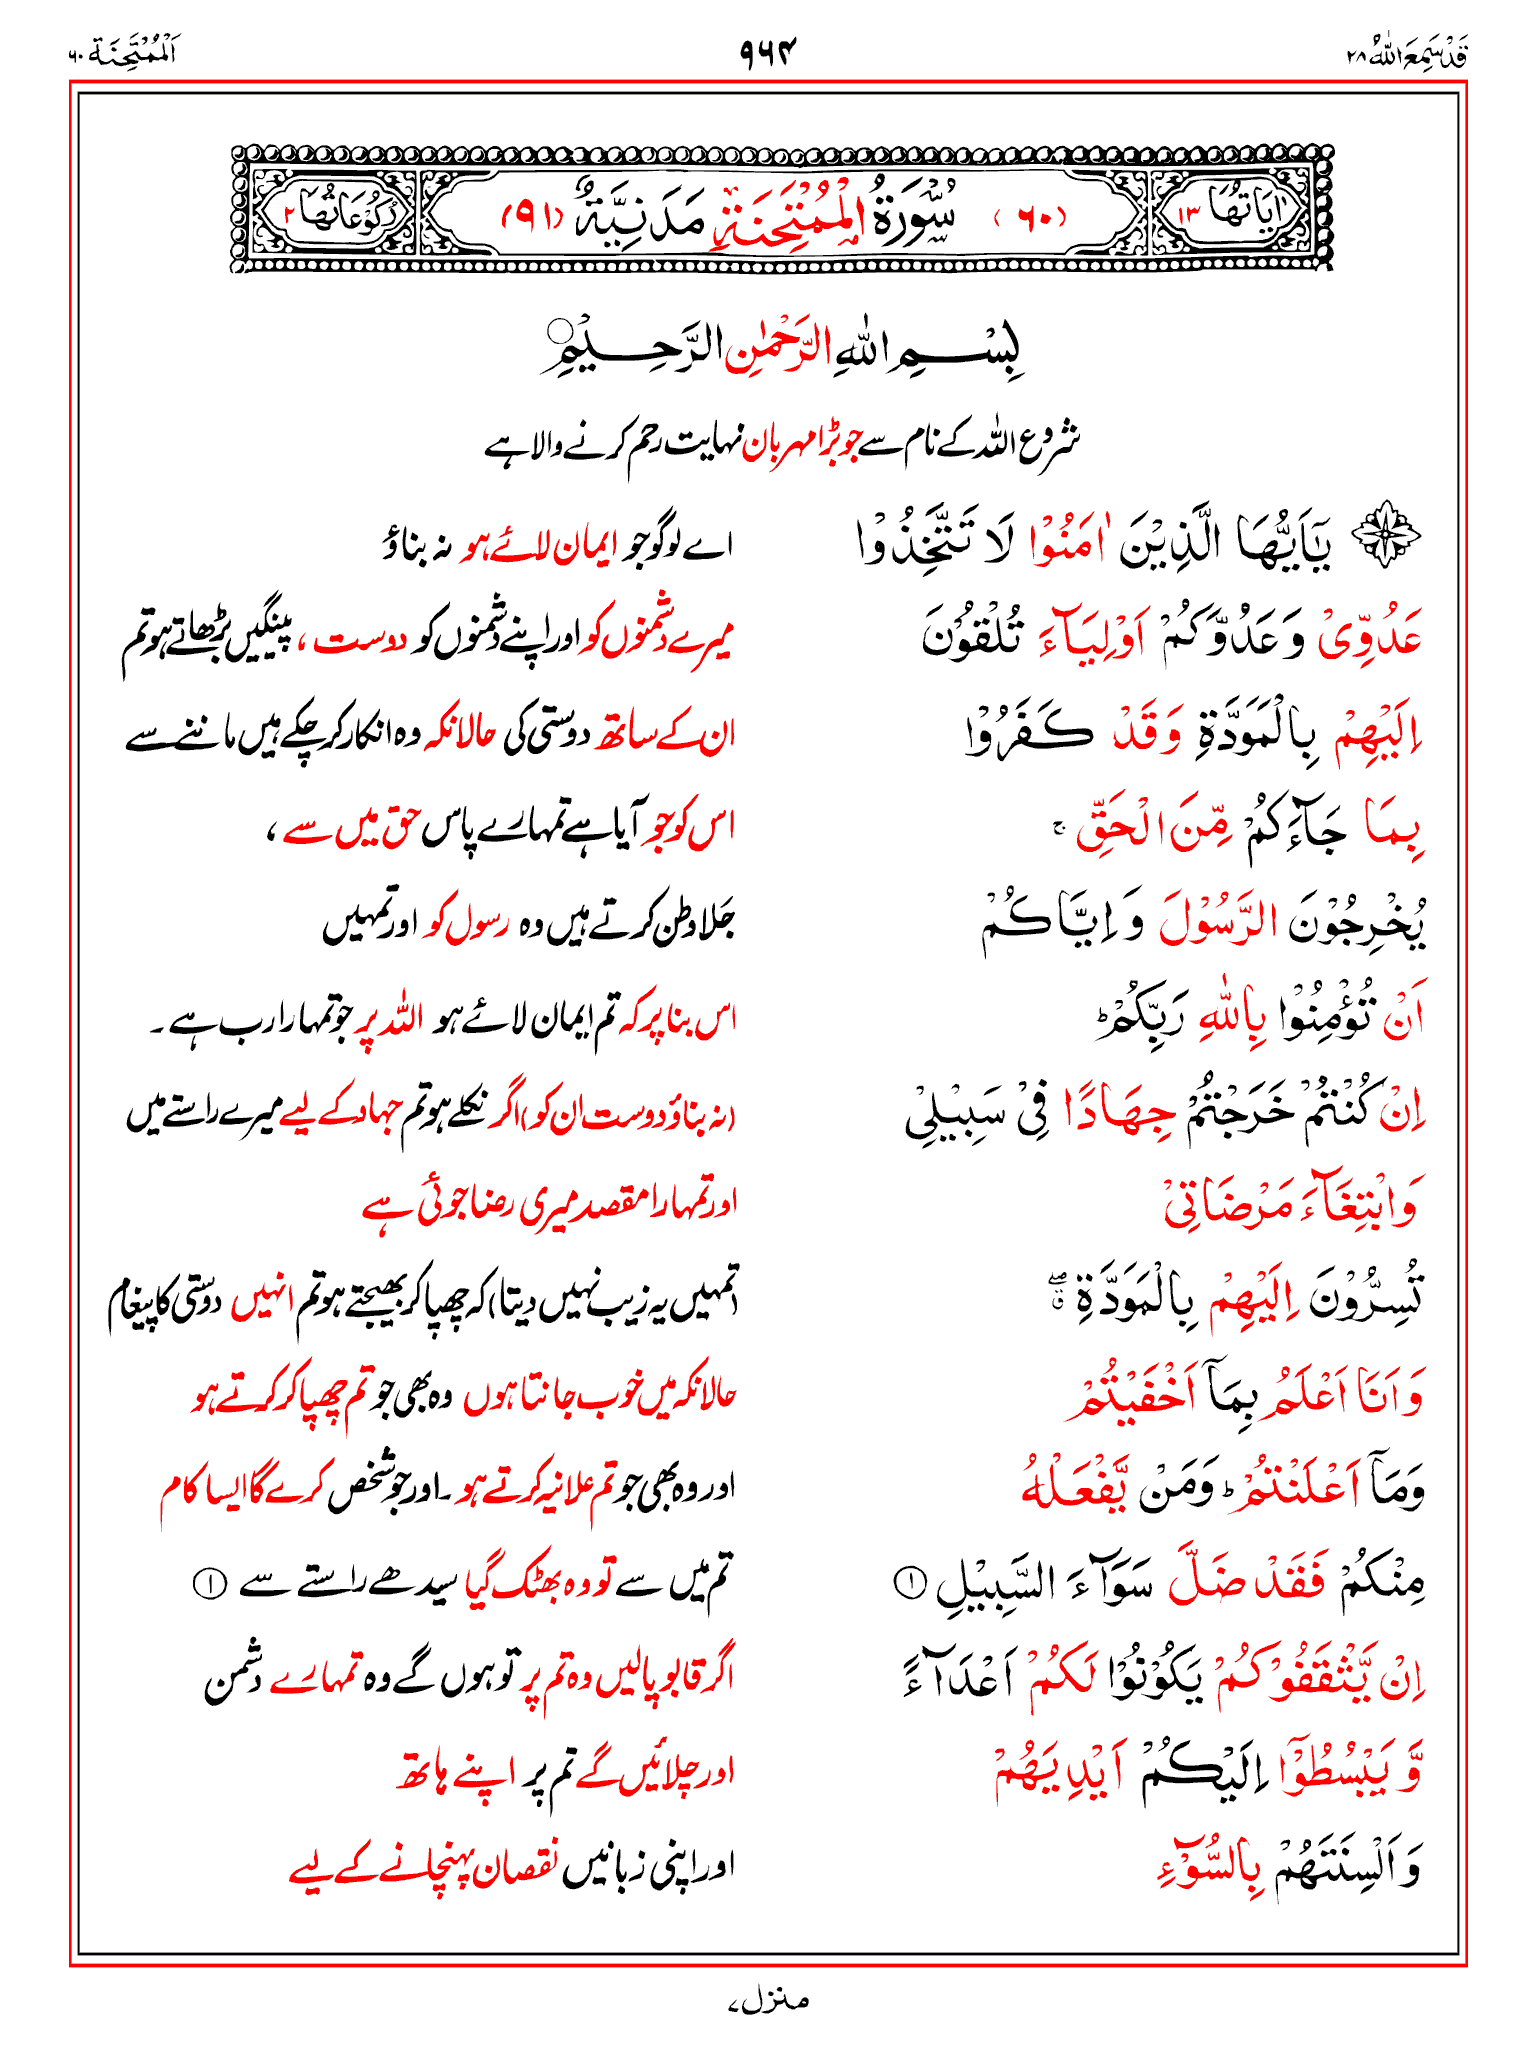 قَدْ سَمِعَ اللّٰهُ ۲۸
۹۶۴
اَلْمُمْتَحِنَة ۶۰
اٰيَاتُهَا ۱۳
(۶۰) سُوْرَةُ الْمُمْتَحِنَةِ مَدَنِيَّةٌ (۹۱)
رُكُوْعَاتُهَا ۲
بِسْمِ اللّٰهِ الرَّحْمٰنِ الرَّحِيْمِ
شروع اللہ کے نام سے جو بڑا مہربان نہایت رحم کرنے والا ہے
يٰۤاَيُّهَا الَّذِيْنَ اٰمَنُوْا لَا تَتَّخِذُوْا اے لوگو جو ایمان لائے ہو نہ بناؤ
عَدُوِّيْ وَعَدُوَّكُمْ اَوْلِيَآءَ تُلْقُوْنَ میرے دشمنوں کو اور اپنے دشمنوں کو دوست، پینگیں بڑھاتے ہو تم
اِلَيْهِمْ بِالْمَوَدَّةِ وَقَدْ كَفَرُوْا ان کے ساتھ دوستی کی حالانکہ وہ انکار کر چکے ہیں ماننے سے
بِمَا جَآءَكُمْ مِّنَ الْحَقِّ ۚ اس کو جو آیا ہے تمہارے پاس حق میں سے،
يُخْرِجُوْنَ الرَّسُوْلَ وَاِيَّاكُمْ جلاوطن کرتے ہیں وہ رسول کو اور تمہیں
اَنْ تُؤْمِنُوْا بِاللّٰهِ رَبِّكُمْ ؕ اس بنا پر کہ تم ایمان لائے ہو اللہ پر جو تمہارا رب ہے۔
اِنْ كُنْتُمْ خَرَجْتُمْ جِهَادًا فِيْ سَبِيْلِيْ (نہ بناؤ دوست ان کو) اگر نکلے ہو تم جہاد کے لیے میرے راستے میں
وَابْتِغَآءَ مَرْضَاتِيْ اور تمہارا مقصد میری رضا جوئی ہے
تُسِرُّوْنَ اِلَيْهِمْ بِالْمَوَدَّةِ ۖق (تمہیں یہ زیب نہیں دیتا) کہ چھپا کر بھیجتے ہو تم انہیں دوستی کا پیغام
وَاَنَا اَعْلَمُ بِمَاۤ اَخْفَيْتُمْ حالانکہ میں خوب جانتا ہوں وہ بھی جو تم چھپا کر کرتے ہو
وَمَاۤ اَعْلَنْتُمْ ؕ وَمَنْ يَّفْعَلْهُ اور وہ بھی جو تم علانیہ کرتے ہو۔ اور جو شخص کرے گا ایسا کام
مِنْكُمْ فَقَدْ ضَلَّ سَوَآءَ السَّبِيْلِ ۱ تم میں سے تو وہ بھٹک گیا سیدھے راستے سے ۱
اِنْ يَّثْقَفُوْكُمْ يَكُوْنُوْا لَكُمْ اَعْدَآءً اگر قابو پالیں وہ تم پر تو ہوں گے وہ تمہارے دشمن
وَّيَبْسُطُوْۤا اِلَيْكُمْ اَيْدِيَهُمْ اور چلائیں گے تم پر اپنے ہاتھ
وَاَلْسِنَتَهُمْ بِالسُّوْٓءِ اور اپنی زبانیں نقصان پہنچانے کے لیے
منزل ۷